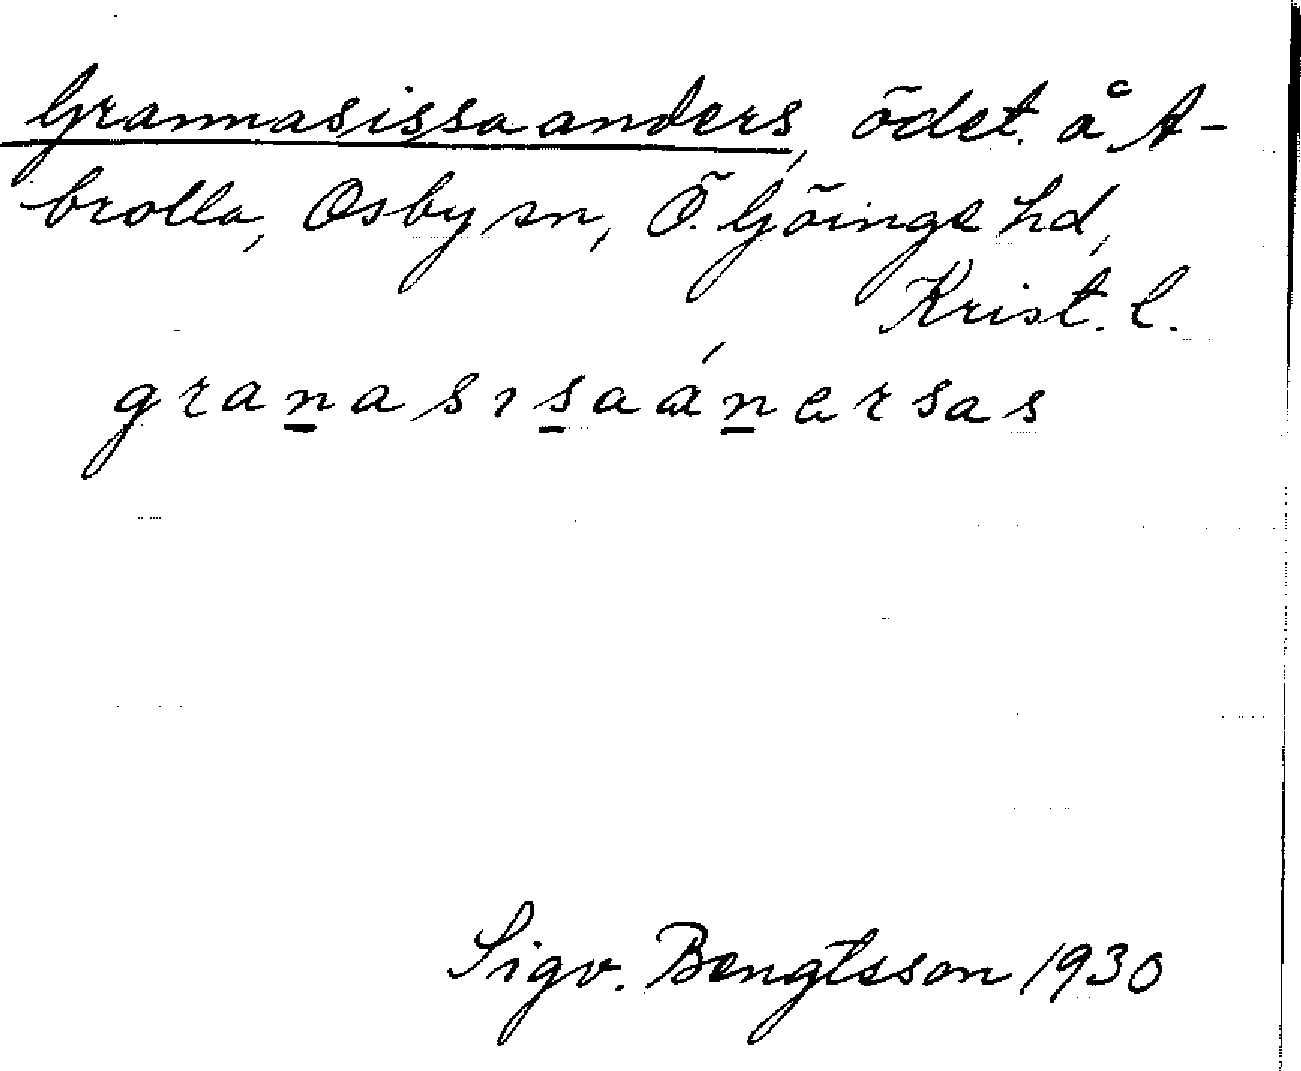 Grannasissaanders, ödet. å A-
brolla, Osby sn, Ö. Göinge hd,
Krist. l.
granasısaánersas
Sigv. Bengtsson 1930